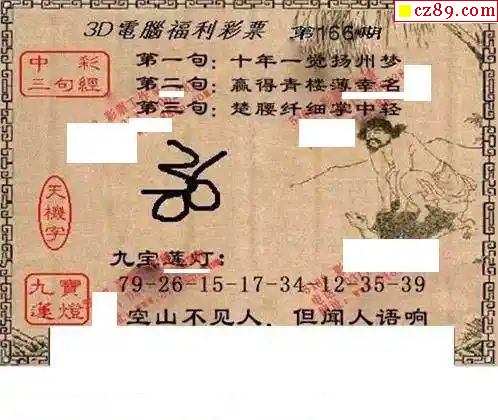 cz89.com
3D電腦福利彩票 第166期
中彩
三句經
第一句：十年一觉扬州梦
第二句：赢得青楼薄幸名
第三句：楚腰纤细掌中轻
天機字
九宝莲灯：
79-26-15-17-34-12-35-39
九寶
蓮燈
空山不见人，但闻人语响